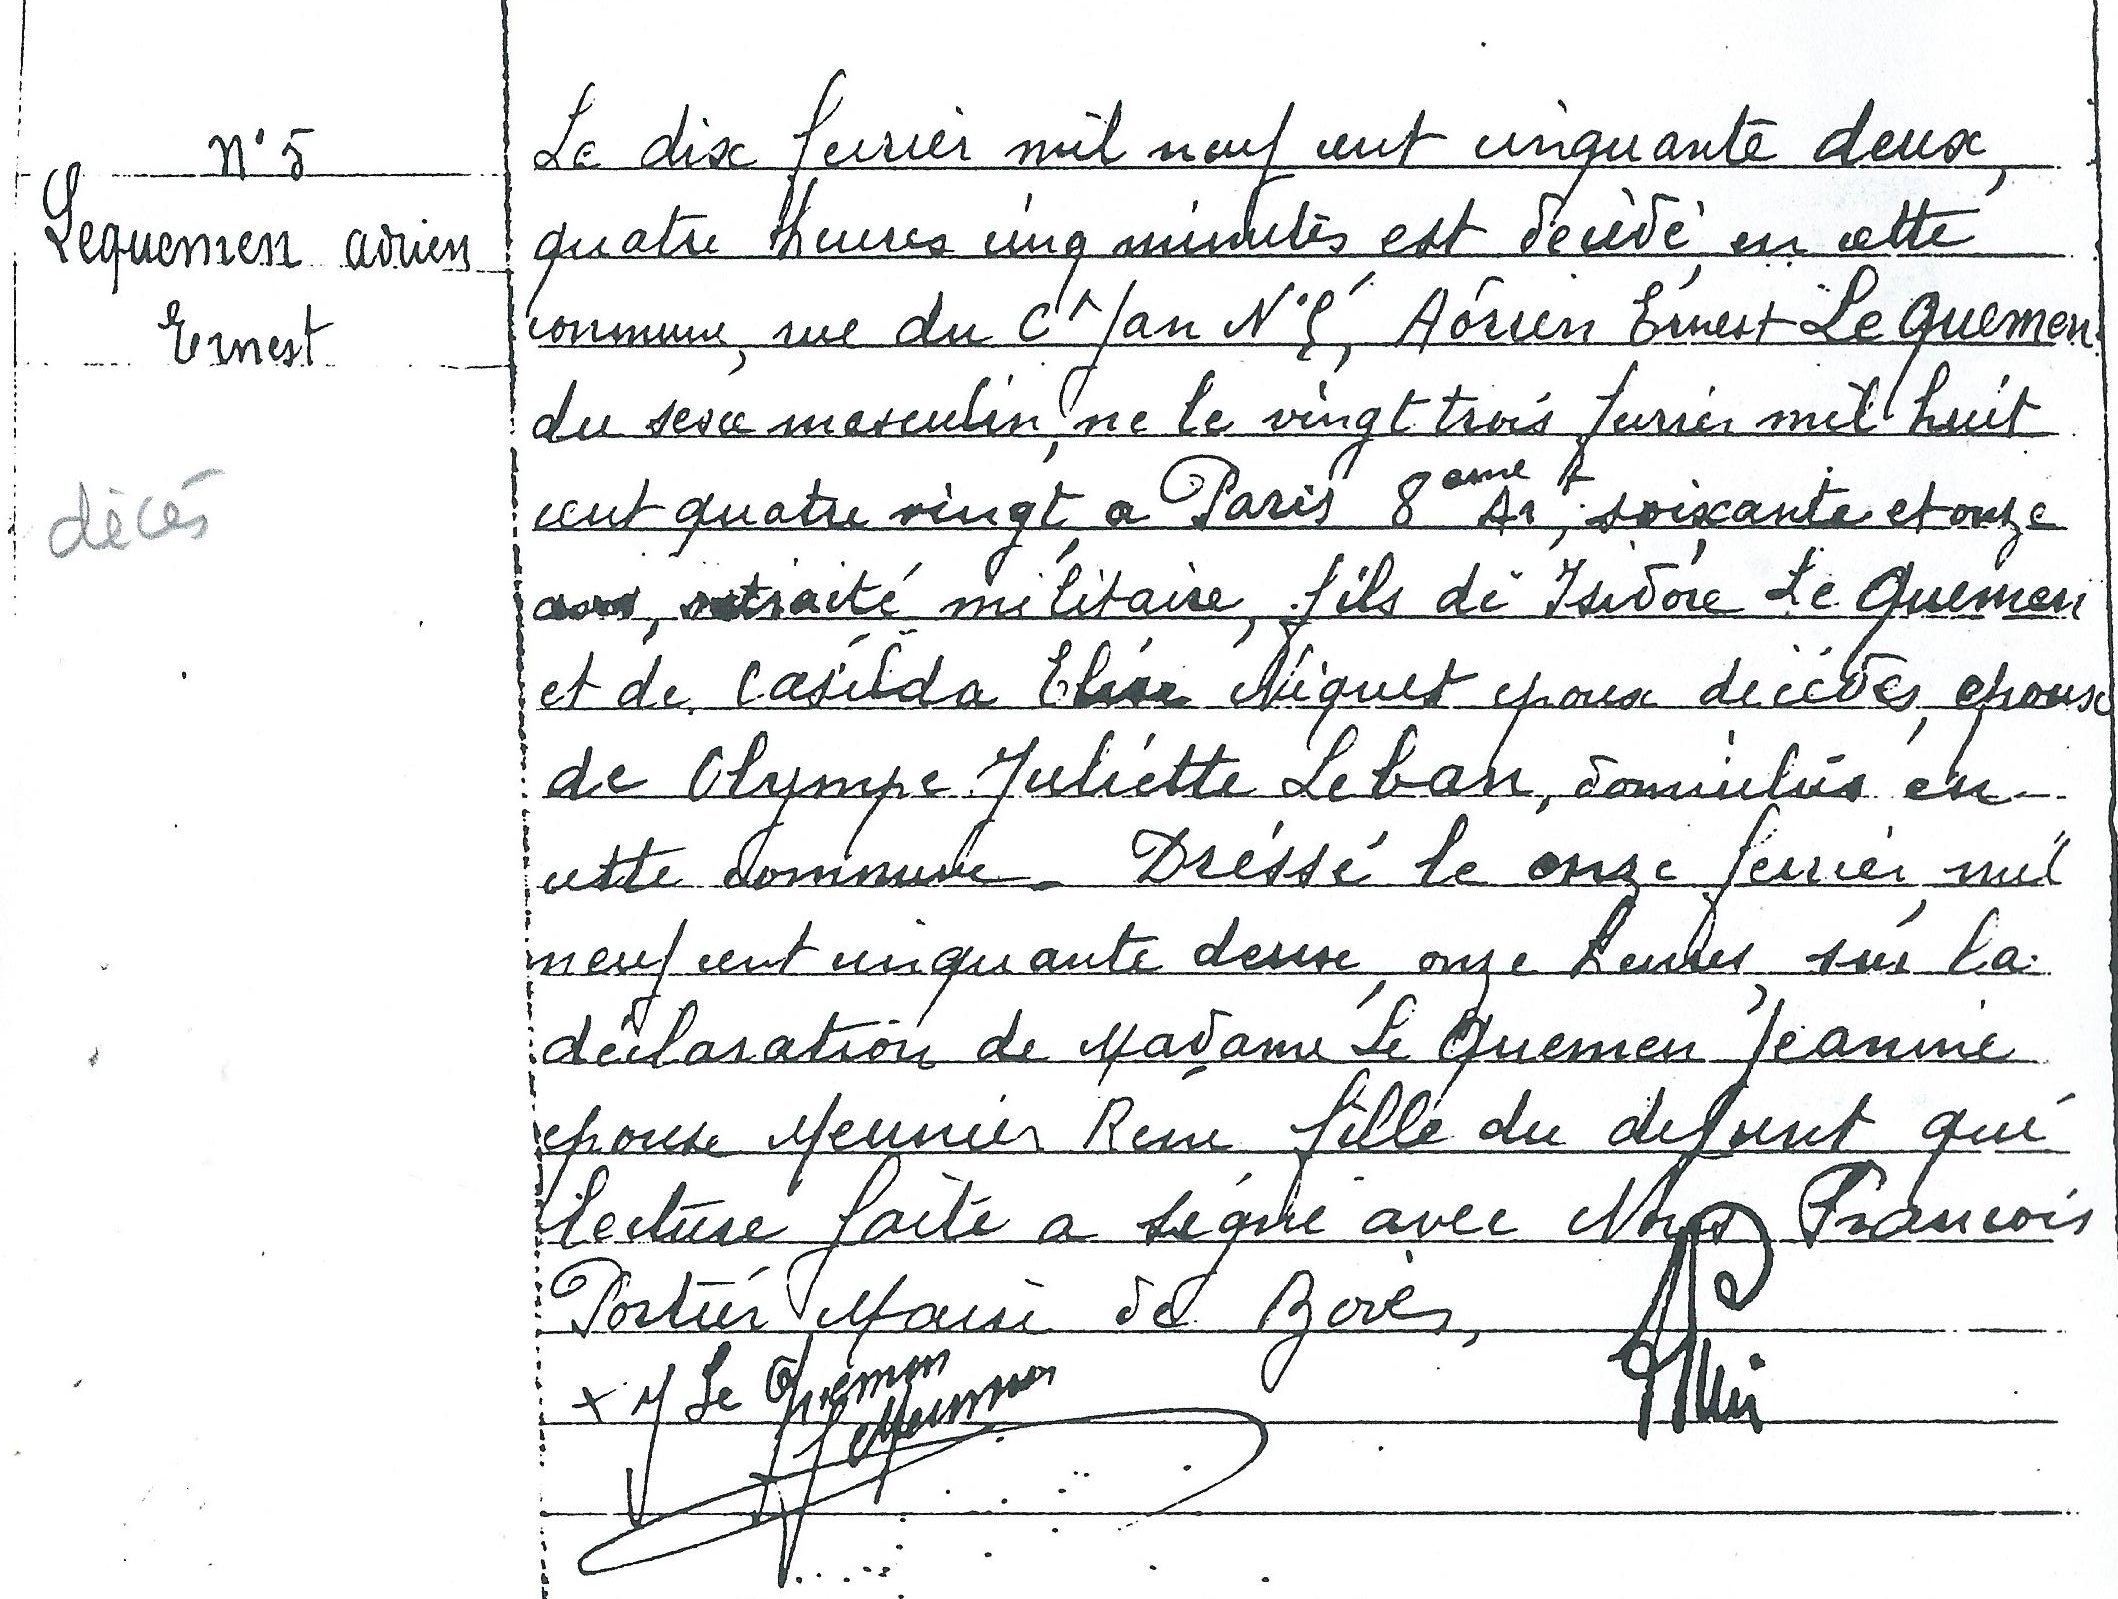 N° 5
Lequemen Adrien
Ernest
décès
Le dix fevrier mil neuf cent cinquante deux,
quatre heures cinq minutes est décédé en cette
commune, rue du Ct Jan N°, Adrien Ernest Le Quemen
du sexe masculin, ne le vingt trois fevrier mil huit
cent quatre vingt, a Paris 8eme Art, soixante et onze
ans, retraité militaire, fils de Isidore Le Quemen
et de Casilda Elise Niquet epoux décédés, epoux
de Olympe Juliette Leban, domiciliés en
cette commune - Dressé le onze fevrier mil
neuf cent cinquante deux, onze heures, sur la
déclaration de Madame Le Quemen Jeanine
epouse Meunier René fille du defunt qui
lecture faite a signé avec Nous François
Portier Maire de
+ J Le Quemen
Meunier